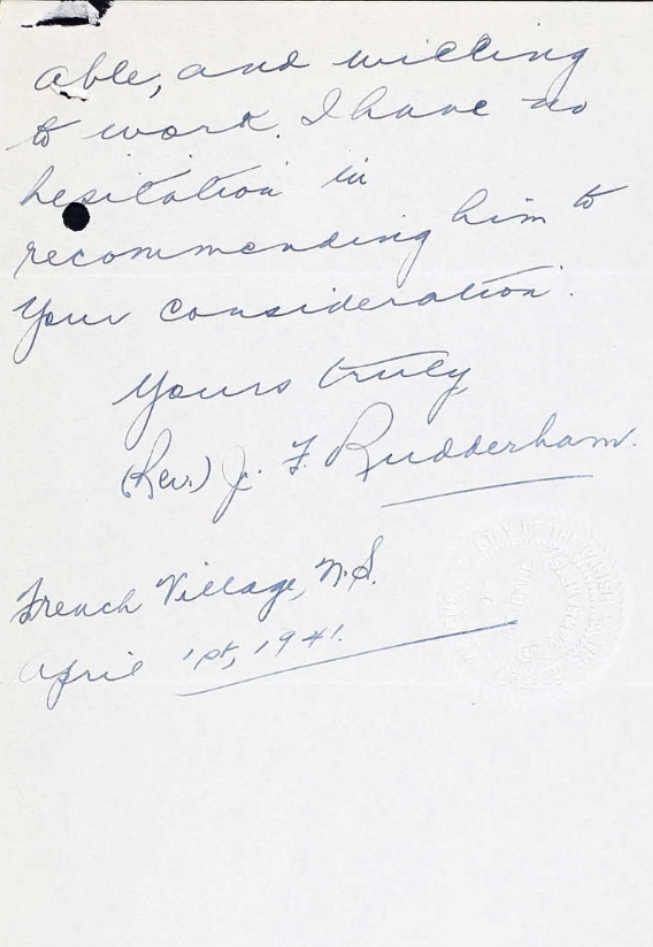 able, and willing
to work. I have no
hesitation in
recommending him to
your consideration.
Yours truly
(Rev.) J. F. Rudderham.
French Village, N.S.
April 1st, 1941.